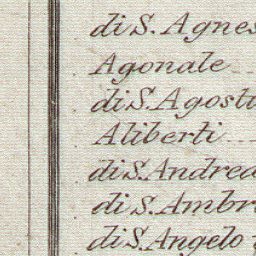 di S. Agnes
Agonale
di S. Agosti
Aliberti
di S. Andrea
di S. Ambr
di S. Angelo